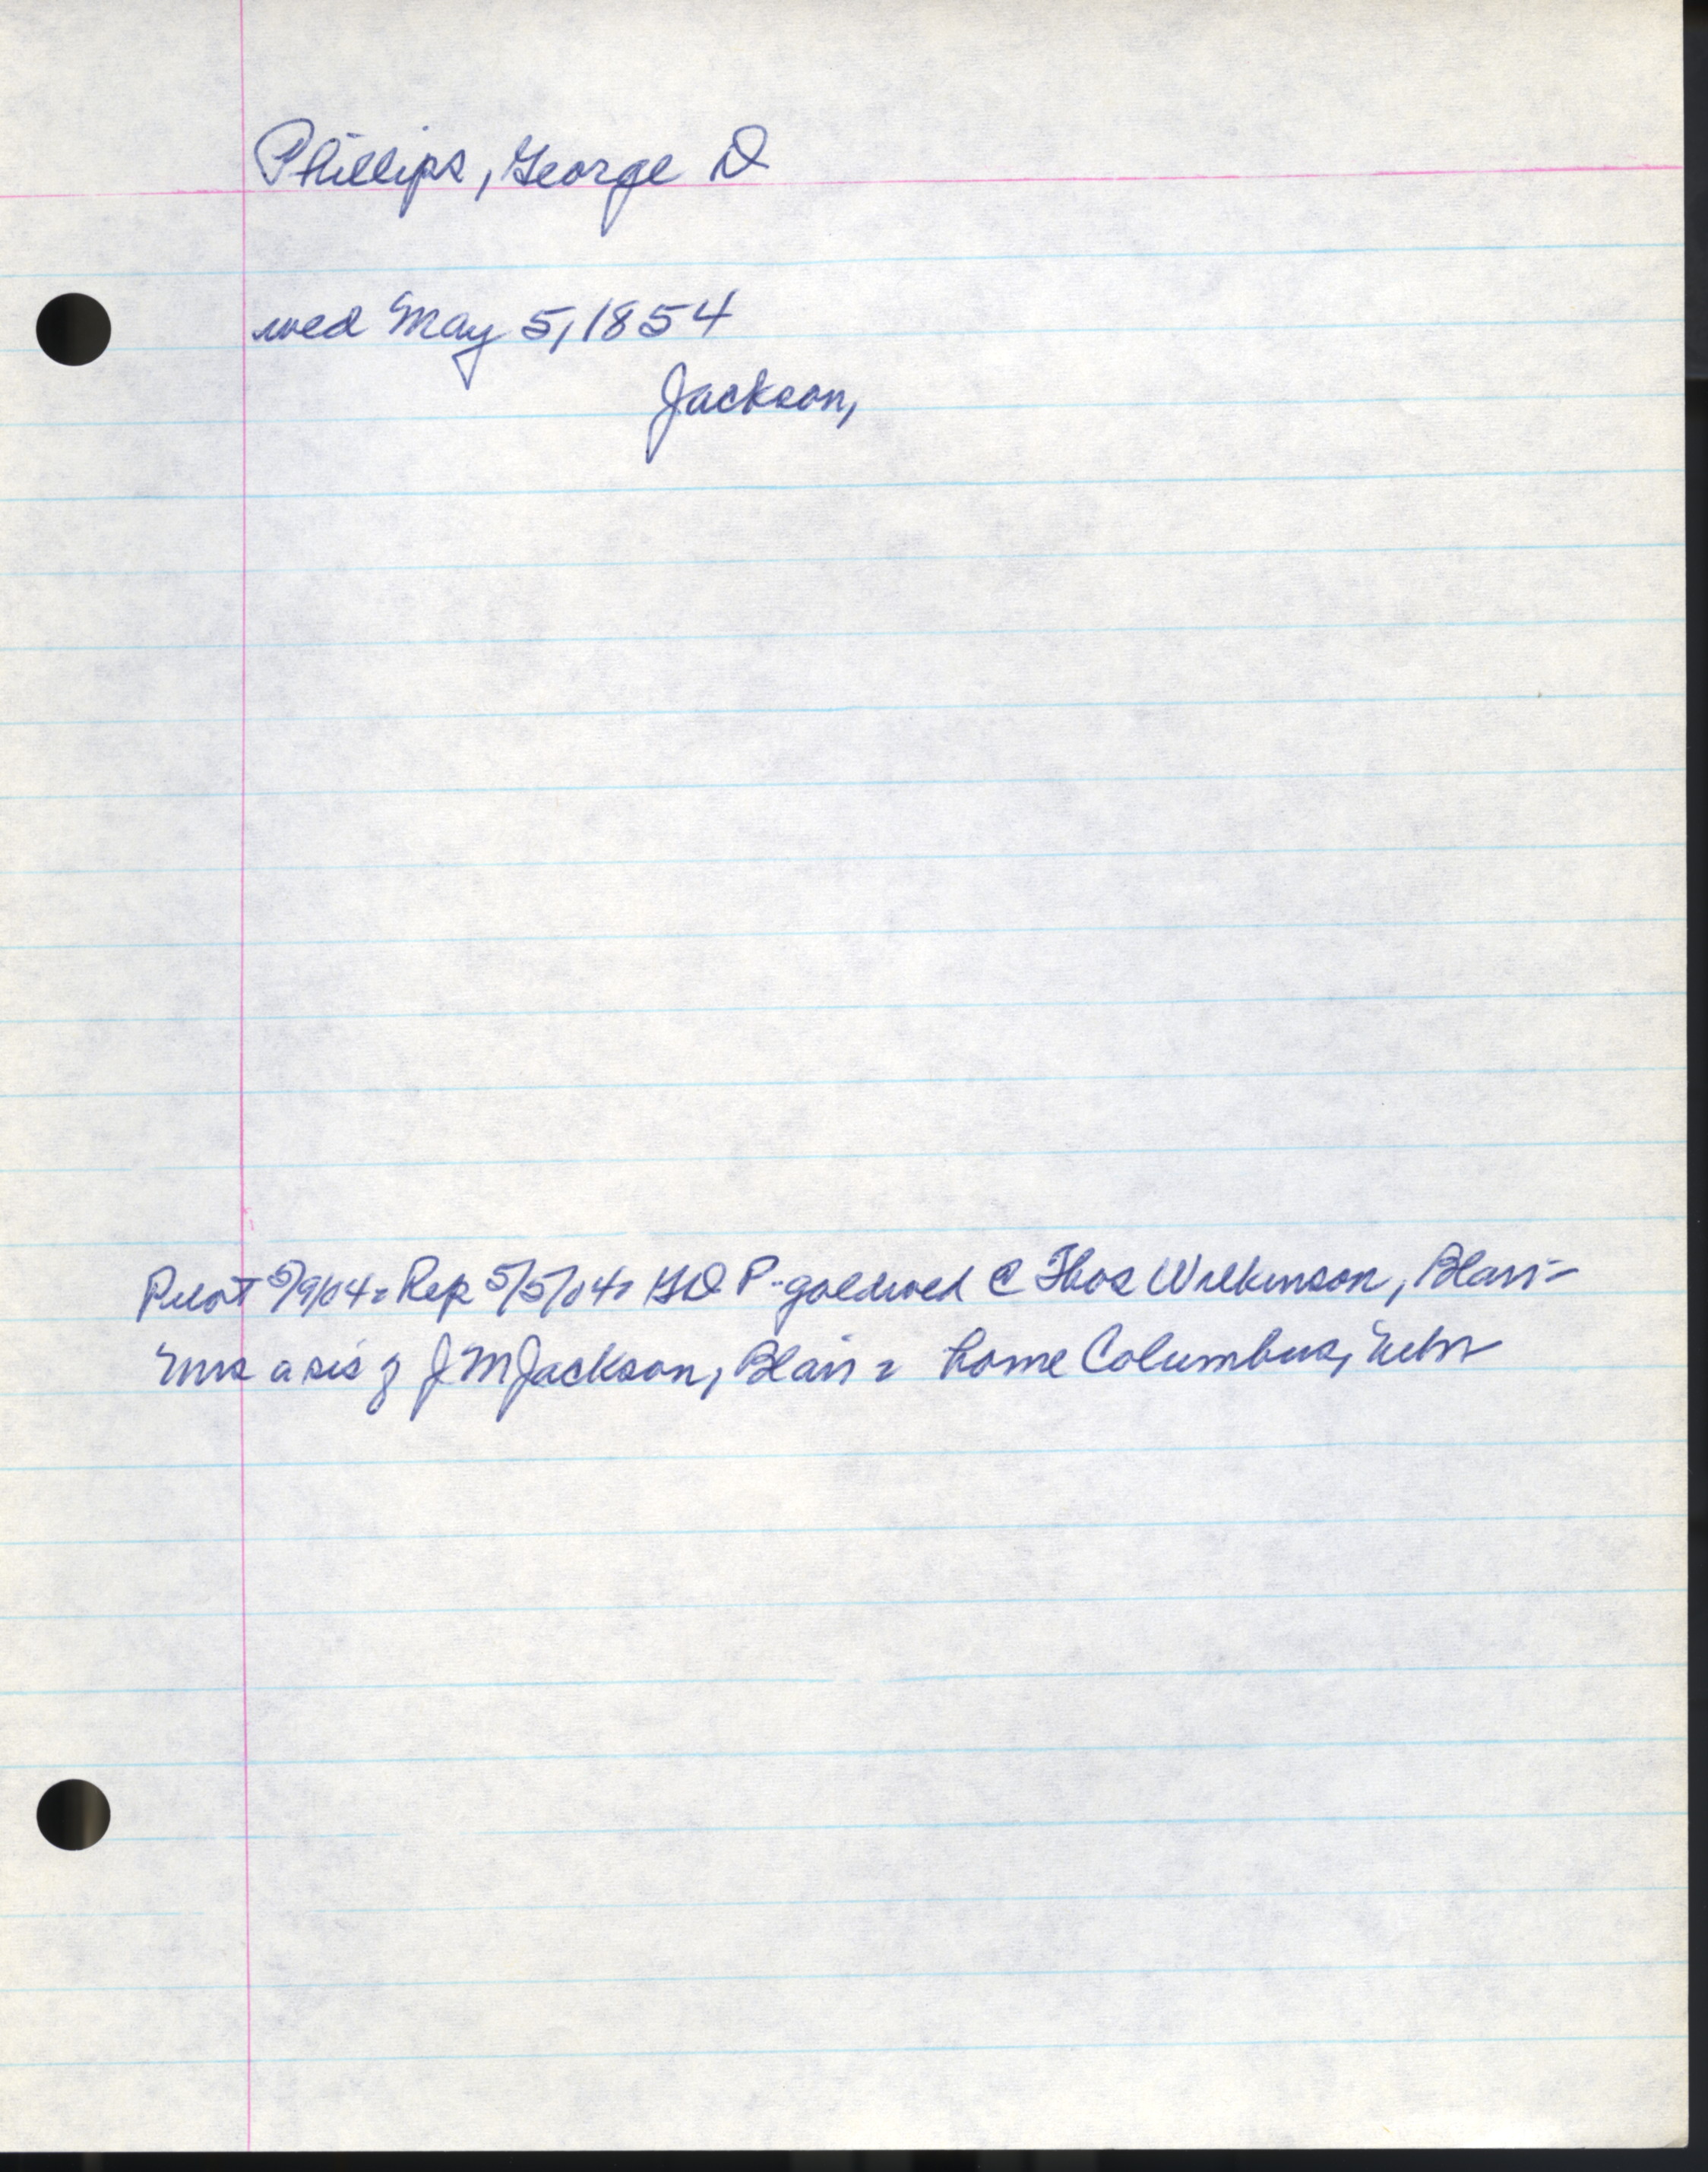 Phillips, George D
wed May 5, 1854
Jackson,
Pilot 5/9/04 = Rep 5/5/04 = GD P - goldwed @ Thos Wilkinson, Blair -
Mrs a sis of J M Jackson, Blair = home Columbus, Nebr